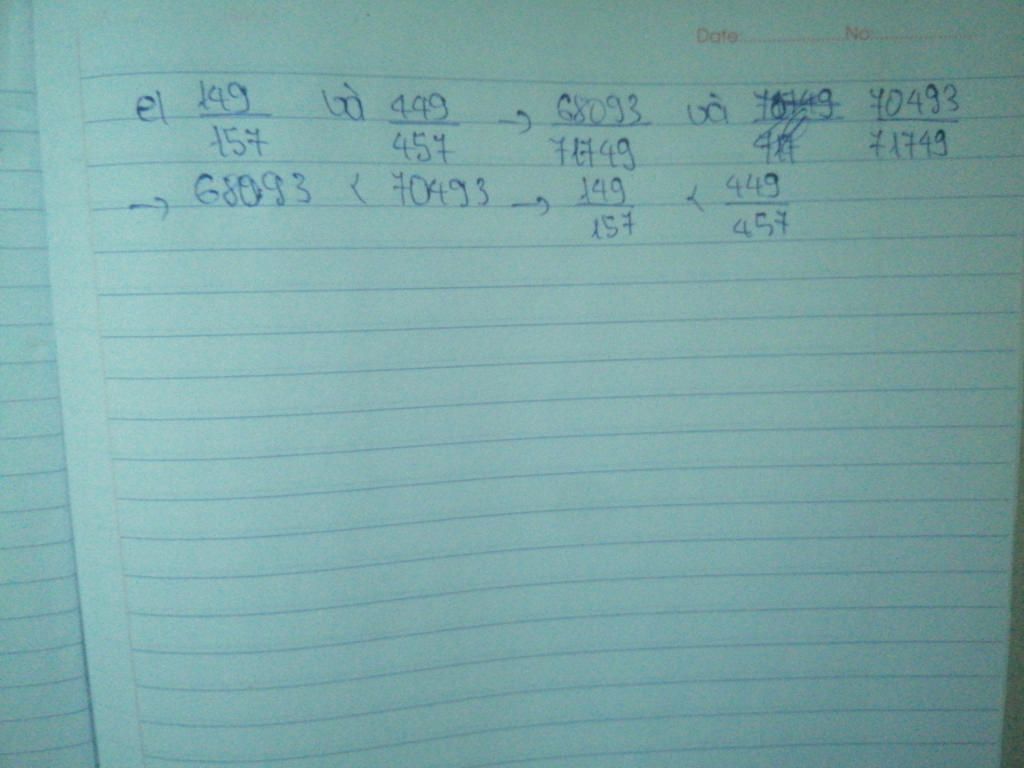 Date: No:
e) 149/157 và 449/457 → 68093/71749 và 70493/71749
→ 68093 < 70493 → 149/157 < 449/457